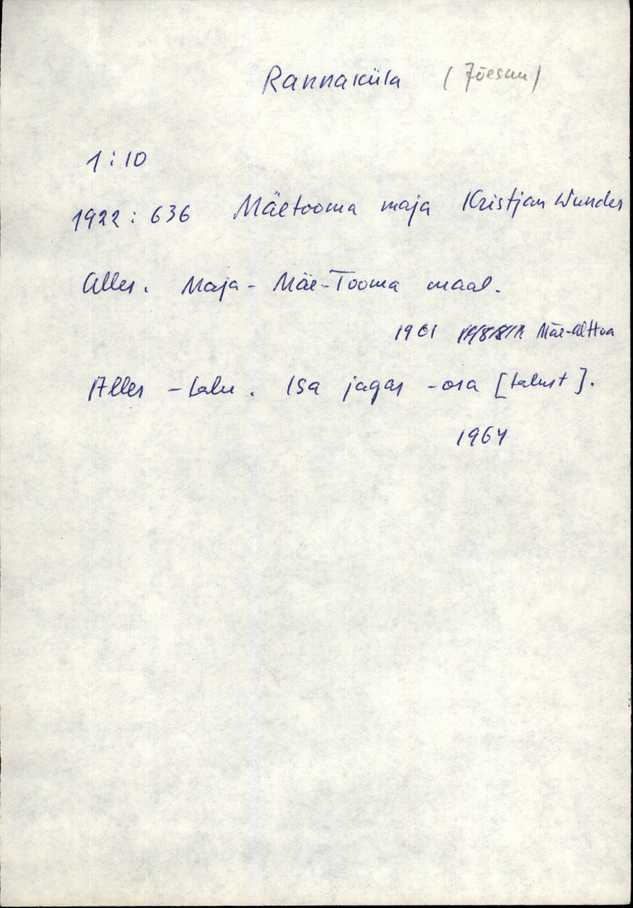 Rannaküla (Jõesuu)
1:10
1922: 636 Mäetooma maja Kristjan Wunder
Alles. Maja - Mäe-Tooma maal.
1961 Mäe-
Alles - talu. Isa jagas - osa [talust].
1964